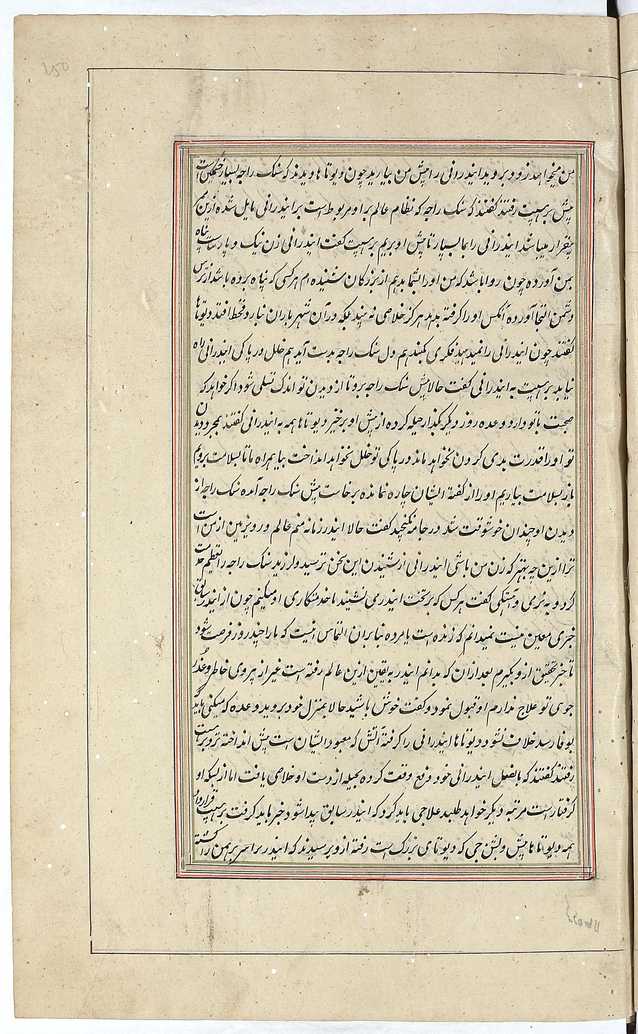 من میخواهد زود بروید اندرانی را پیش من بیارید چون دیوتاها دیدند که نهک راجه بسیار خشمگین است
پیش برهسپت رفتند گفتند که نهک راجه که نظام عالم بر او مربوط است بر اندرانی مایل شده ازین
بیقرار میباشد اندرانی را بما بسپار تا پیش او بریم برهسپت گفت اندرانی زن نیک و پارساست پناه
بمن آورده چون روا باشد که من او را بشما بدهم از بزرگان شنیده ام هر کسی که پناه برده باشد از ترس
دشمن التجا آورده آنکس او را گرفته بدهد هرگز خلاصی نه بیند بلکه در آن شهر باران نبارد و قحط افتد دیوتاها
گفتند چون اندرانی را نمیدهید فکری بکنید هم دل نهک راجه بدست آید هم خلل در پاکی اندرانی راه
نیابد برهسپت به اندرانی گفت حالا پیش نهک راجه برو تا از دیدن تو اندک تسلی شود اگر خواهد که
صحبت با تو دارد وعده روز دیگر بگذار حیله کرده از پیش او برخیز دیوتاها همه به اندرانی گفتند بمجرد دیدن
تو او را قدرت بدی کردن نخواهد ماند در پاکی تو خلل نخواهد انداخت بیا همراه ما تا بسلامت برویم
باز بسلامت بیاریم او را از گفته ایشان چاره نمانده برخاست پیش نهک راجه آمده نهک راجه از
دیدن او چندان خوشوقت شد در جامه نگنجید گفت حالا اندر زمانه منم عالم و روی زمین از من است
ترا ازین چه بهتر که زن من باشی اندرانی از شنیدن این سخن ترسید و لرزید نهک راجه را تعظیم خدمت
کرد و به نرمی و آهستگی گفت هر کس که بر تخت اندری نشیند ما خدمتکاری او میکنیم چون از اندر سابق
خبری معین نیست نمیدانم که زنده است یا مرده بنا بران التماس اینست که مرا چند روز فرصت شود
تا خبر تحقیق ازو بگیرم بعد از ان که بدانم اندر به یقین ازین عالم رفته است غیر از پیروی خاطر و عذر
جوی تو علاج ندارم او قبول نمود و گفت خوش باشید حالا بمنزل خود بروید وعده که میکنی باید
بوفا رسد خلاف نشود دیوتاها اندرانی را گرفته آتش که معبود ایشان است پیش انداخته نزد برهسپت
رفتند گفتند که بالفعل اندرانی خود دفع وقت کرده بحیله از دست او خلاصی یافت اما از بسکه او
گرفتار است مرتبه دیگر خواهد طلبید علاجی باید کرد که اندر سابق پیدا شود خبر باید گرفت برهسپت قرار داد
همه دیوتاها پیش وبشن جی که دیوتای بزرگ است رفته ازو پرسیدند که اندر برای سر برهمن را کشته